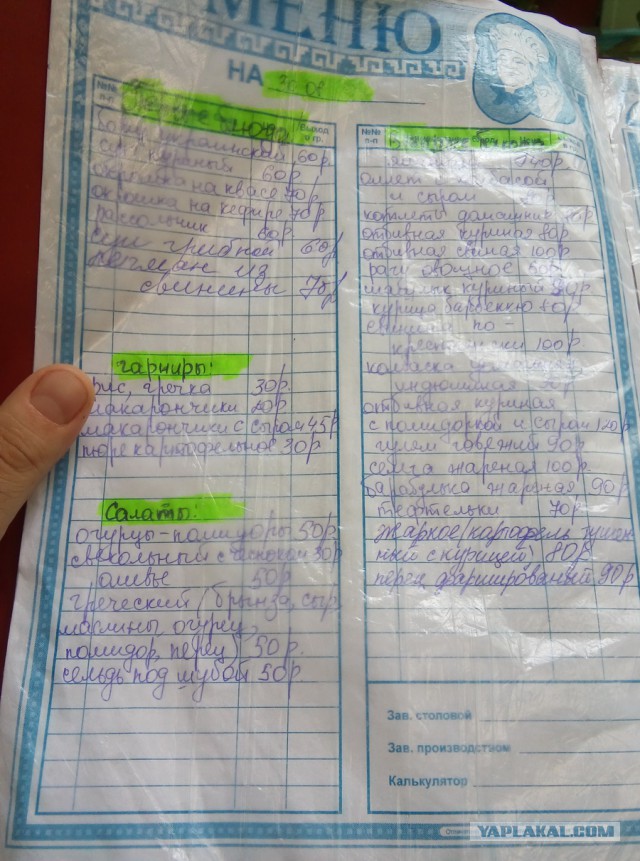 МЕНЮ
НА 30.08
№№ п-п
Выход в гр.
борщ украинский 60р.
суп куриный 60р.
окрошка на квасе 70р.
окрошка на кефире 70р
рассольник 60р.
суп грибной 60р
лагман из
свинины 75р
гарниры:
рис, гречка 30р.
макарончики 20р.
макарончики с сыром 45р
пюре картофельное 30р
Салаты:
огурцы-помидоры 50р.
свекольный с чесноком 30р
оливье 50р
греческий (брынза, сыр
маслины, огурец,
помидор, перец) 50р.
сельдь под шубой 50р.
№№ п-п
омлет с колбасой
и сыром
котлеты домашние
отбивная куриная 80р
отбивная свиная 100р
рагу овощное 50р
шашлык куриный 90р
курица барбекю 80р
по-
крестьянски 100р
колбаска
индюшиная
отбивная куриная
с помидоркой и сыром 120р
гуляш говяжий 90р
семга жареная 100р.
барабулька жареная 90р
тефтельки 70р
жаркое (картофель тушен
ный с курицей) 80р
перец фаршированный 90р
Зав. столовой
Зав. производством
Калькулятор
YAPLAKAL.COM